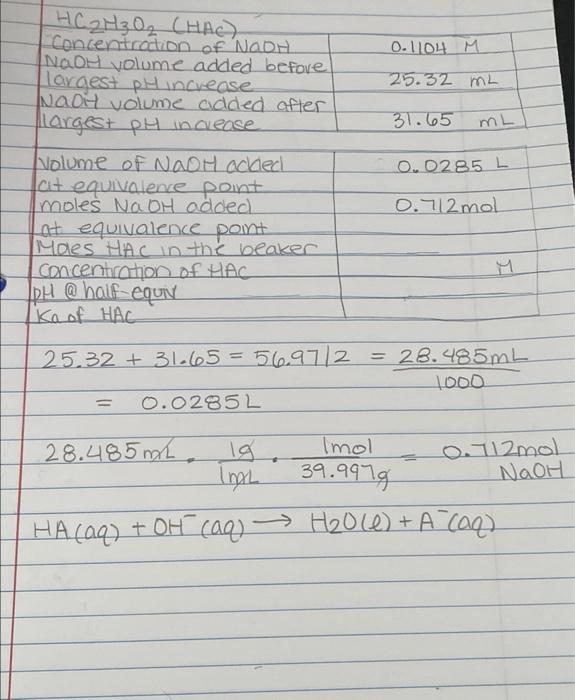 HC2H3O2 (HAC)
Concentration of NaOH 0.1104 M
NaOH volume added before
largest pH increase 25.32 mL
NaOH volume added after
largest pH increase 31.65 mL
Volume of NaOH added 0.0285 L
at equivalence point
moles NaOH added 0.712mol
at equivalence point
Moles HAC in the beaker
Concentration of HAC M
pH @ half-equiv
Ka of HAC
25.32 + 31.65 = 56.97/2 = 28.485mL
1000
= 0.0285L
28.485mL . 1g . 1mol = 0.712mol
1mL 39.997g NaOH
HA(aq) + OH⁻(aq) → H2O(l) + A⁻(aq)